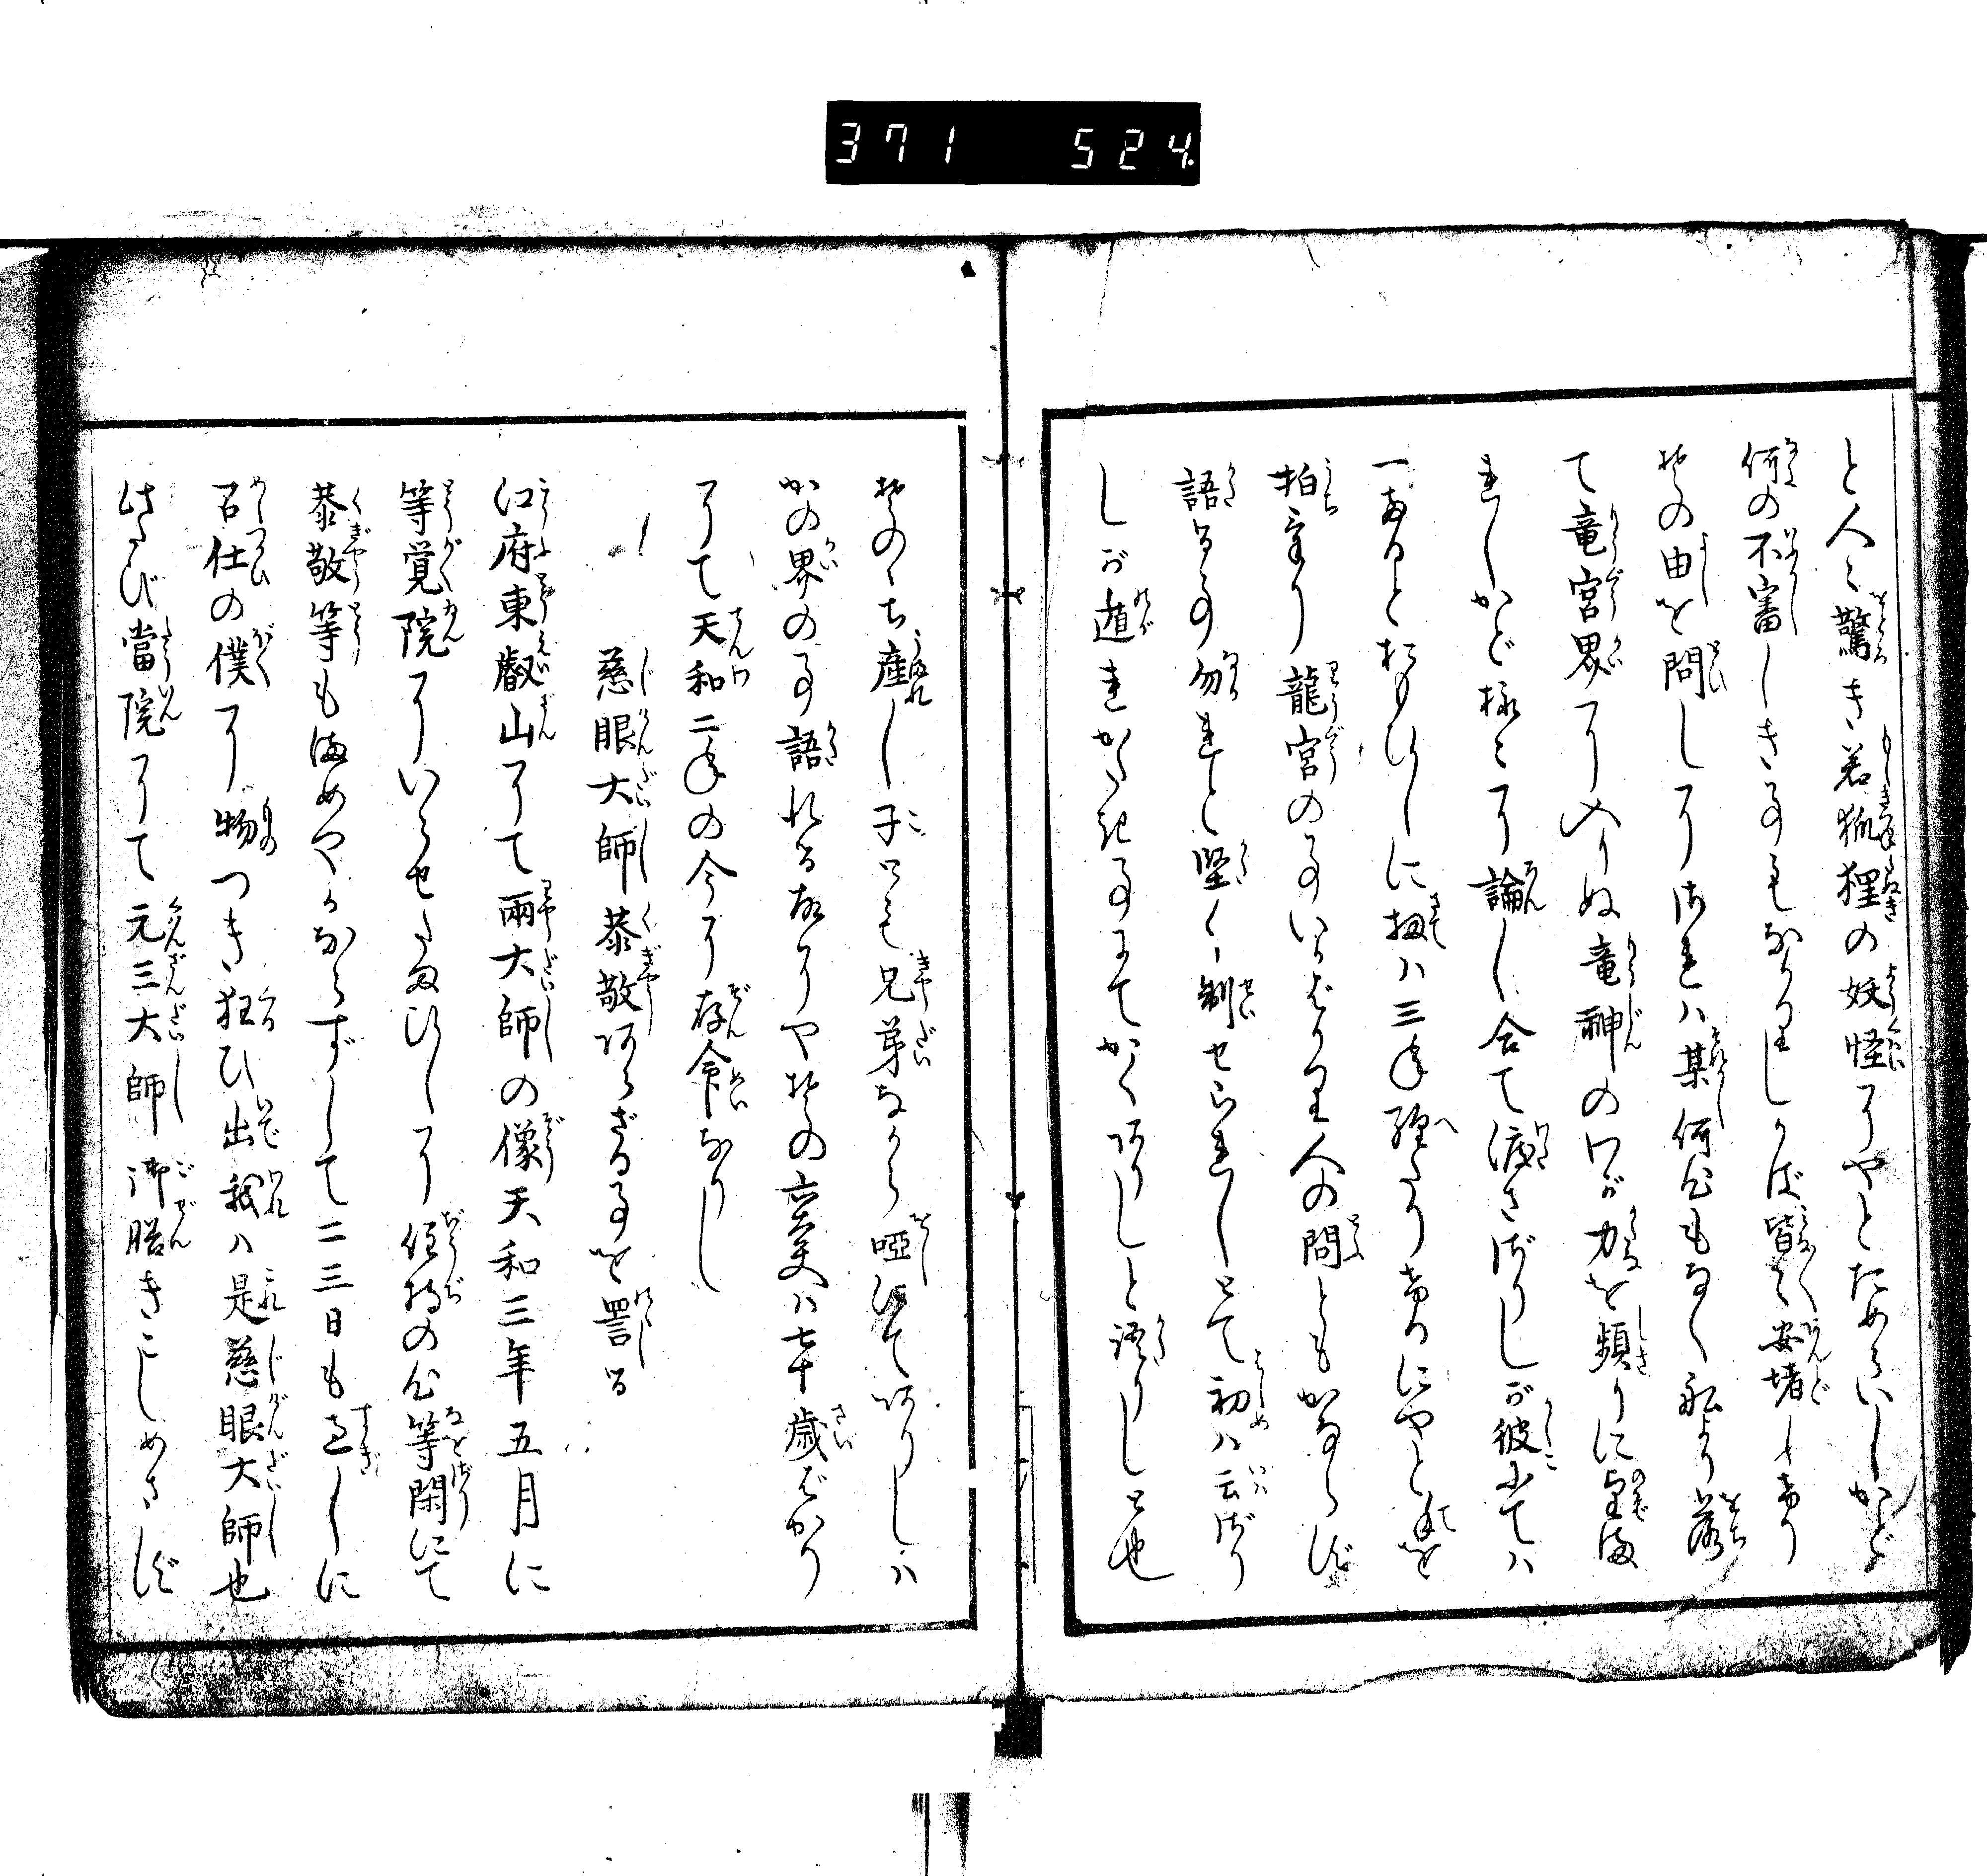 371 524.
と人々驚き若狐狸の妖怪にやとためらいしかど
何の不審しき事もなかりしかば皆々安堵しけり
其の由を問しに我は某何心もなく船より落
て竜宮界に入りぬ竜神のわが力を頻りに望ま
れしかど様々に論じ合て渡さざりしが彼にては
一日るとおもひしに扨は三年経たりけるにやと手を
拍けり龍宮の事いかばかり人の問ともかならず
語る事勿れと堅く制せられしとて初は云ざり
しが遁れがたき事にてかくありしと語りしと也
其のち産し子とも兄弟ながら啞にてありしは
かの界の事語れる故にや其の夫は七十歳ばかり
にて天和二年の今に存命なりし
慈眼大師恭敬あらざる事を詈る
江府東叡山にて兩大師の像天和三年五月に
等覚院にいらせたまひしに住持の心等閑にて
恭敬等もまめやかならずして二三日も過しに
召仕の僕に物つき狂ひ出我は是慈眼大師也
此たび當院にて元三大師御膳きこしめさず